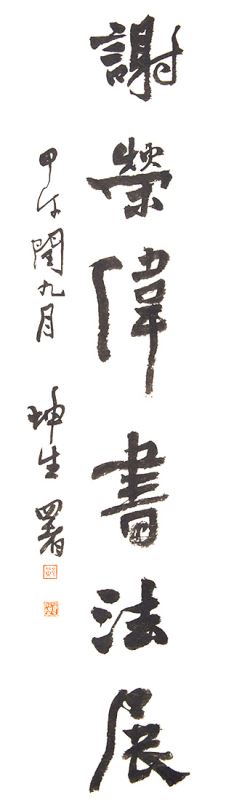 謝榮偉書法展
甲午閏九月 坤生署